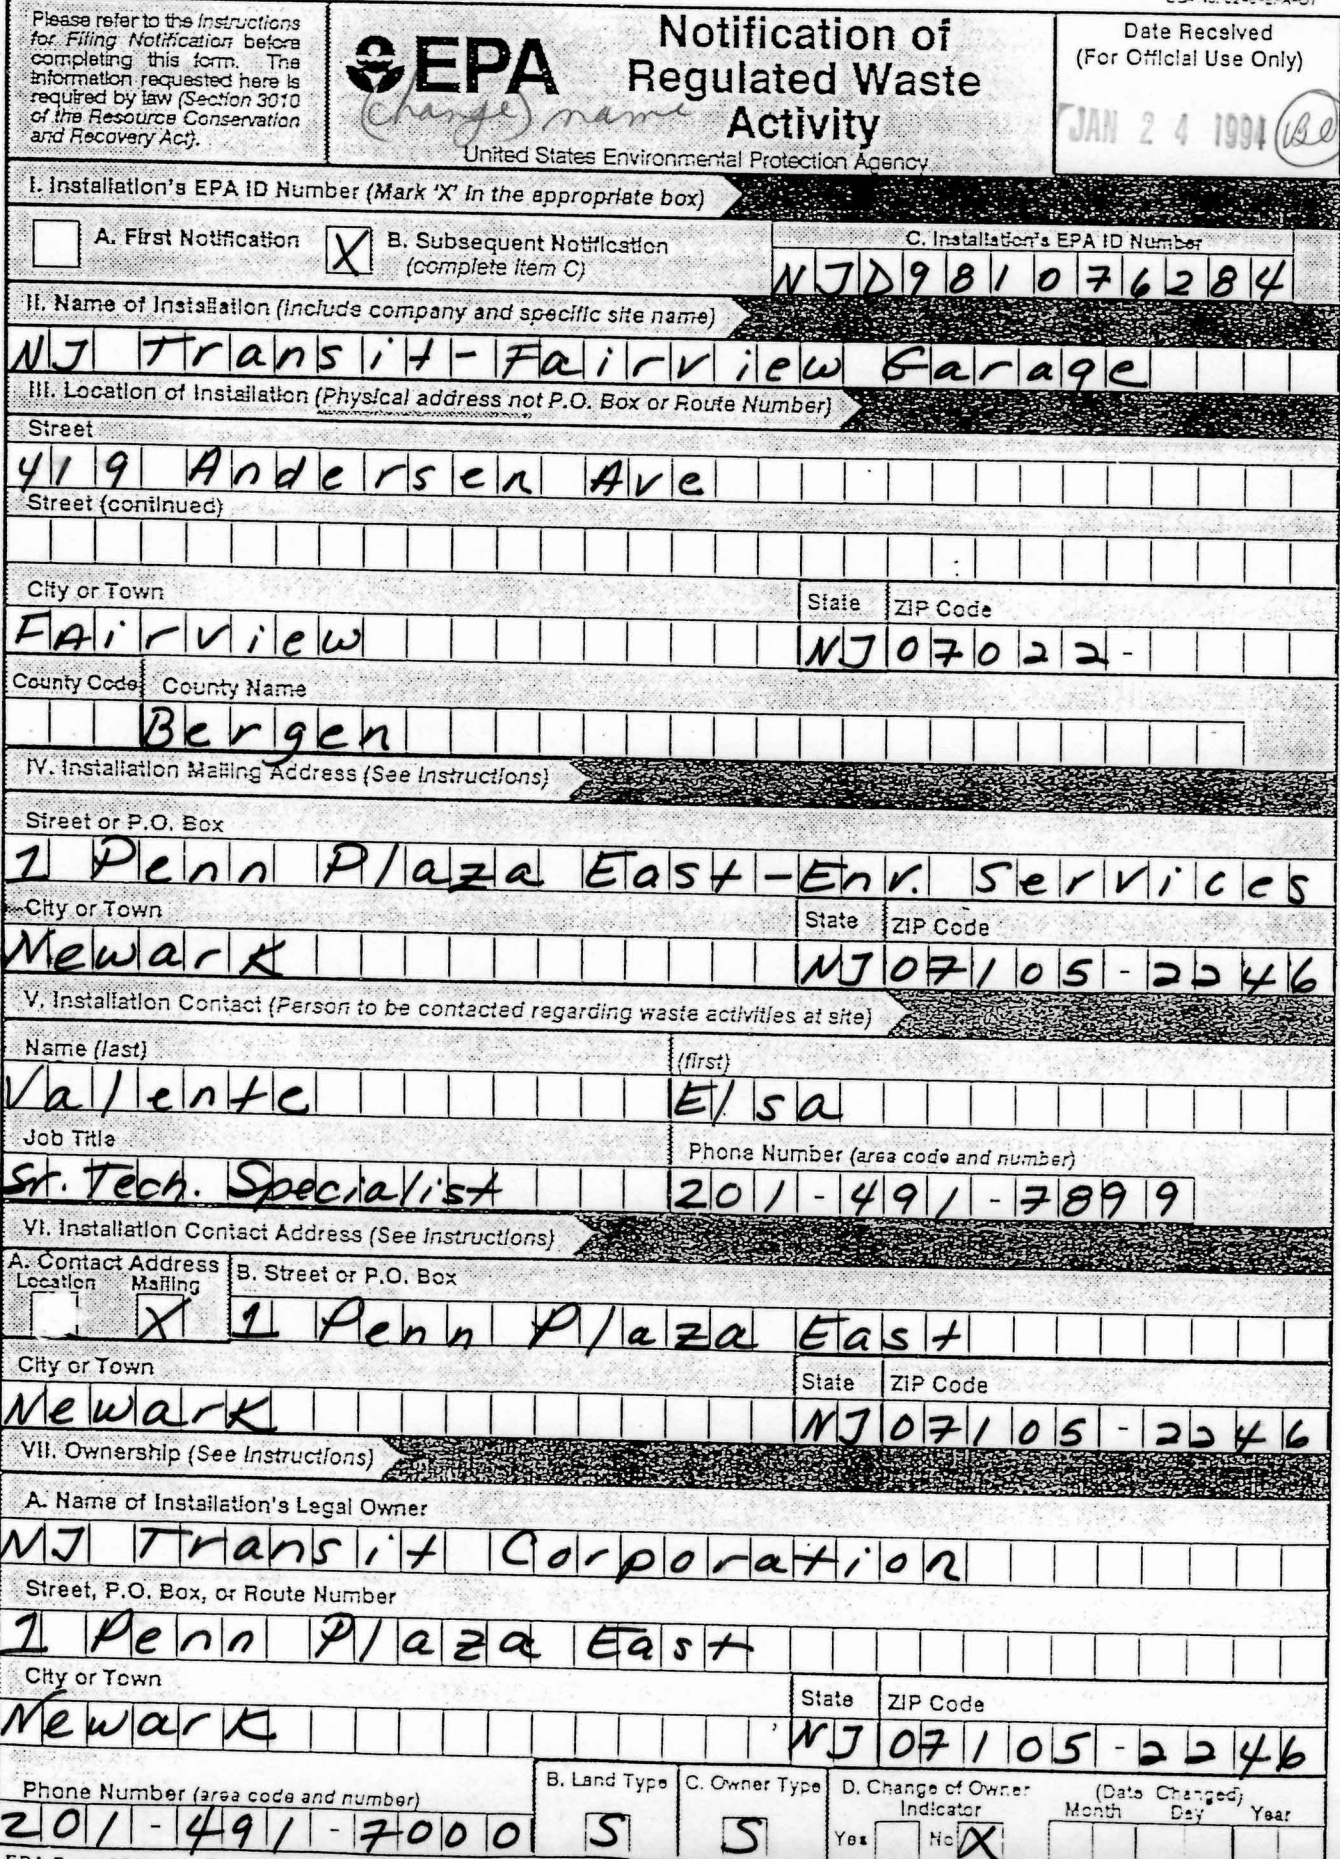 Please refer to the Instructions
for Filing Notification before
completing this form. The
information requested here is
required by law (Section 3010
of the Resource Conservation
and Recovery Act).
EPA
(change) name
Notification of
Regulated Waste
Activity
United States Environmental Protection Agency
Date Received
(For Official Use Only)
JAN 24 1994
I. Installation's EPA ID Number (Mark 'X' in the appropriate box)
A. First Notification
X B. Subsequent Notification
(complete item C)
C. Installation's EPA ID Number
NJD981076284
II. Name of Installation (Include company and specific site name)
NJ Transit-Fairview Garage
III. Location of Installation (Physical address not P.O. Box or Route Number)
Street
419 Andersen Ave
Street (continued)
City or Town State ZIP Code
FAirview NJ 07022-
County Code County Name
Bergen
IV. Installation Mailing Address (See Instructions)
Street or P.O. Box
1 Penn Plaza East-Env. Services
City or Town State ZIP Code
Newark NJ 07105-2246
V. Installation Contact (Person to be contacted regarding waste activities at site)
Name (last) (first)
Valente Elsa
Job Title Phone Number (area code and number)
Sr. Tech. Specialist 201-491-7899
VI. Installation Contact Address (See Instructions)
A. Contact Address
Location Mailing
X
B. Street or P.O. Box
1 Penn Plaza East
City or Town State ZIP Code
Newark NJ 07105-2246
VII. Ownership (See Instructions)
A. Name of Installation's Legal Owner
NJ Transit Corporation
Street, P.O. Box, or Route Number
1 Penn Plaza East
City or Town State ZIP Code
Newark NJ 07105-2246
Phone Number (area code and number)
201-491-7000
B. Land Type
S
C. Owner Type
S
D. Change of Owner
Indicator
Yes No X
(Date Changed)
Month Day Year